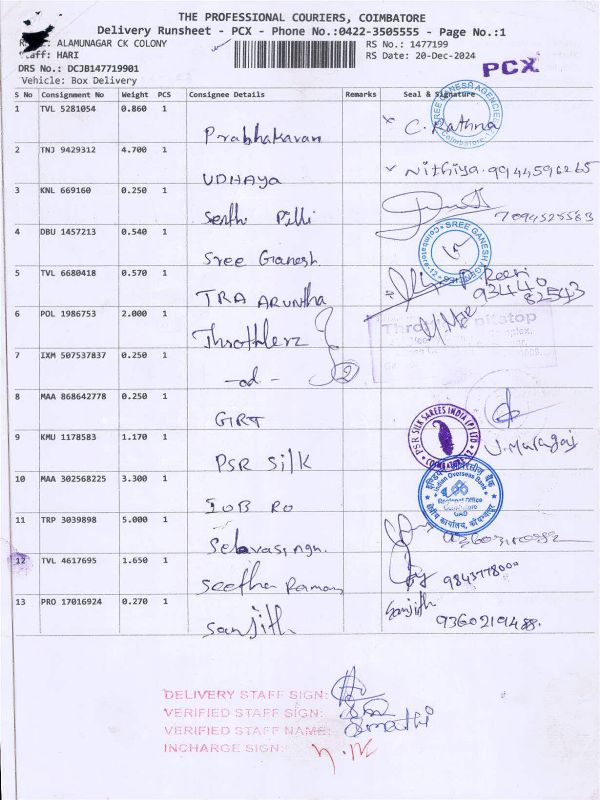 THE PROFESSIONAL COURIERS, COIMBATORE
Delivery Runsheet - PCX - Phone No.:0422-3505555 - Page No.:1
ALAMUNAGAR CK COLONY
RS No.: 1477199
Staff: HARI
RS Date: 20-Dec-2024
DRS No.: DCJB147719901
PCX
Vehicle: Box Delivery
S No Consignment No Weight PCS Consignee Details Remarks Seal & Signature
1 TVL 5281054 0.860 1 Prabhakaran C. Rathna
2 TNJ 9429312 4.700 1 UDHAYA Nithiya. 9944596265
3 KNL 669160 0.250 1 Senthi Pilli 7094525563
4 DBU 1457213 0.540 1 Sree Ganesh
5 TVL 6680418 0.570 1 TRA ARUNTHA 93440 82543
6 POL 1986753 2.000 1 Throttlerz
7 IXM 507537837 0.250 1 -od- 2
8 MAA 868642778 0.250 1 GRT
9 KMU 1178583 1.170 1 PSR Silk J. Murugaj
PSR SILK SAREES INDIA (P) LTD
COIMBATORE-12
10 MAA 302568225 3.300 1 IOB RO
Indian Overseas Bank
Regional Office
Coimbatore
GAD
11 TRP 3039898 5.000 1
12 TVL 4617695 1.650 1 Seetha Raman 9843778000
13 PRO 17016924 0.270 1 Sanjith Sanjith 9360219488.
DELIVERY STAFF SIGN:
VERIFIED STAFF SIGN:
VERIFIED STAFF NAME: Sumathi
INCHARGE SIGN: